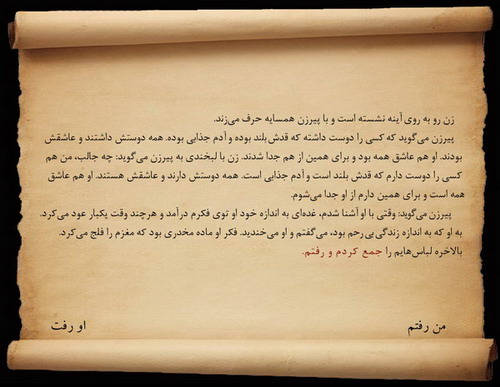 زن رو به روی آینه نشسته است و با پیرزن همسایه حرف می‌زند.
پیرزن می‌گوید که کسی را دوست داشته که قدش بلند بوده و آدم جذابی بوده. همه دوستش داشتند و عاشقش
بودند. او هم عاشق همه بود و برای همین از هم جدا شدند. زن با لبخندی به پیرزن می‌گوید: چه جالب، من هم
کسی را دوست دارم که قدش بلند است و آدم جذابی است. همه دوستش دارند و عاشقش هستند. او هم عاشق
همه است و برای همین دارم از او جدا می‌شوم.
پیرزن می‌گوید: وقتی با او آشنا شدم، غده‌ای به اندازه خود او توی فکرم درآمد و هرچند وقت یکبار عود می‌کرد.
به او که به اندازه زندگی بی‌رحم بود، می‌گفتم و او می‌خندید. فکر او ماده مخدری بود که مغزم را فلج می‌کرد.
بالاخره لباس‌هایم را جمع کردم و رفتم.
من رفتم او رفت